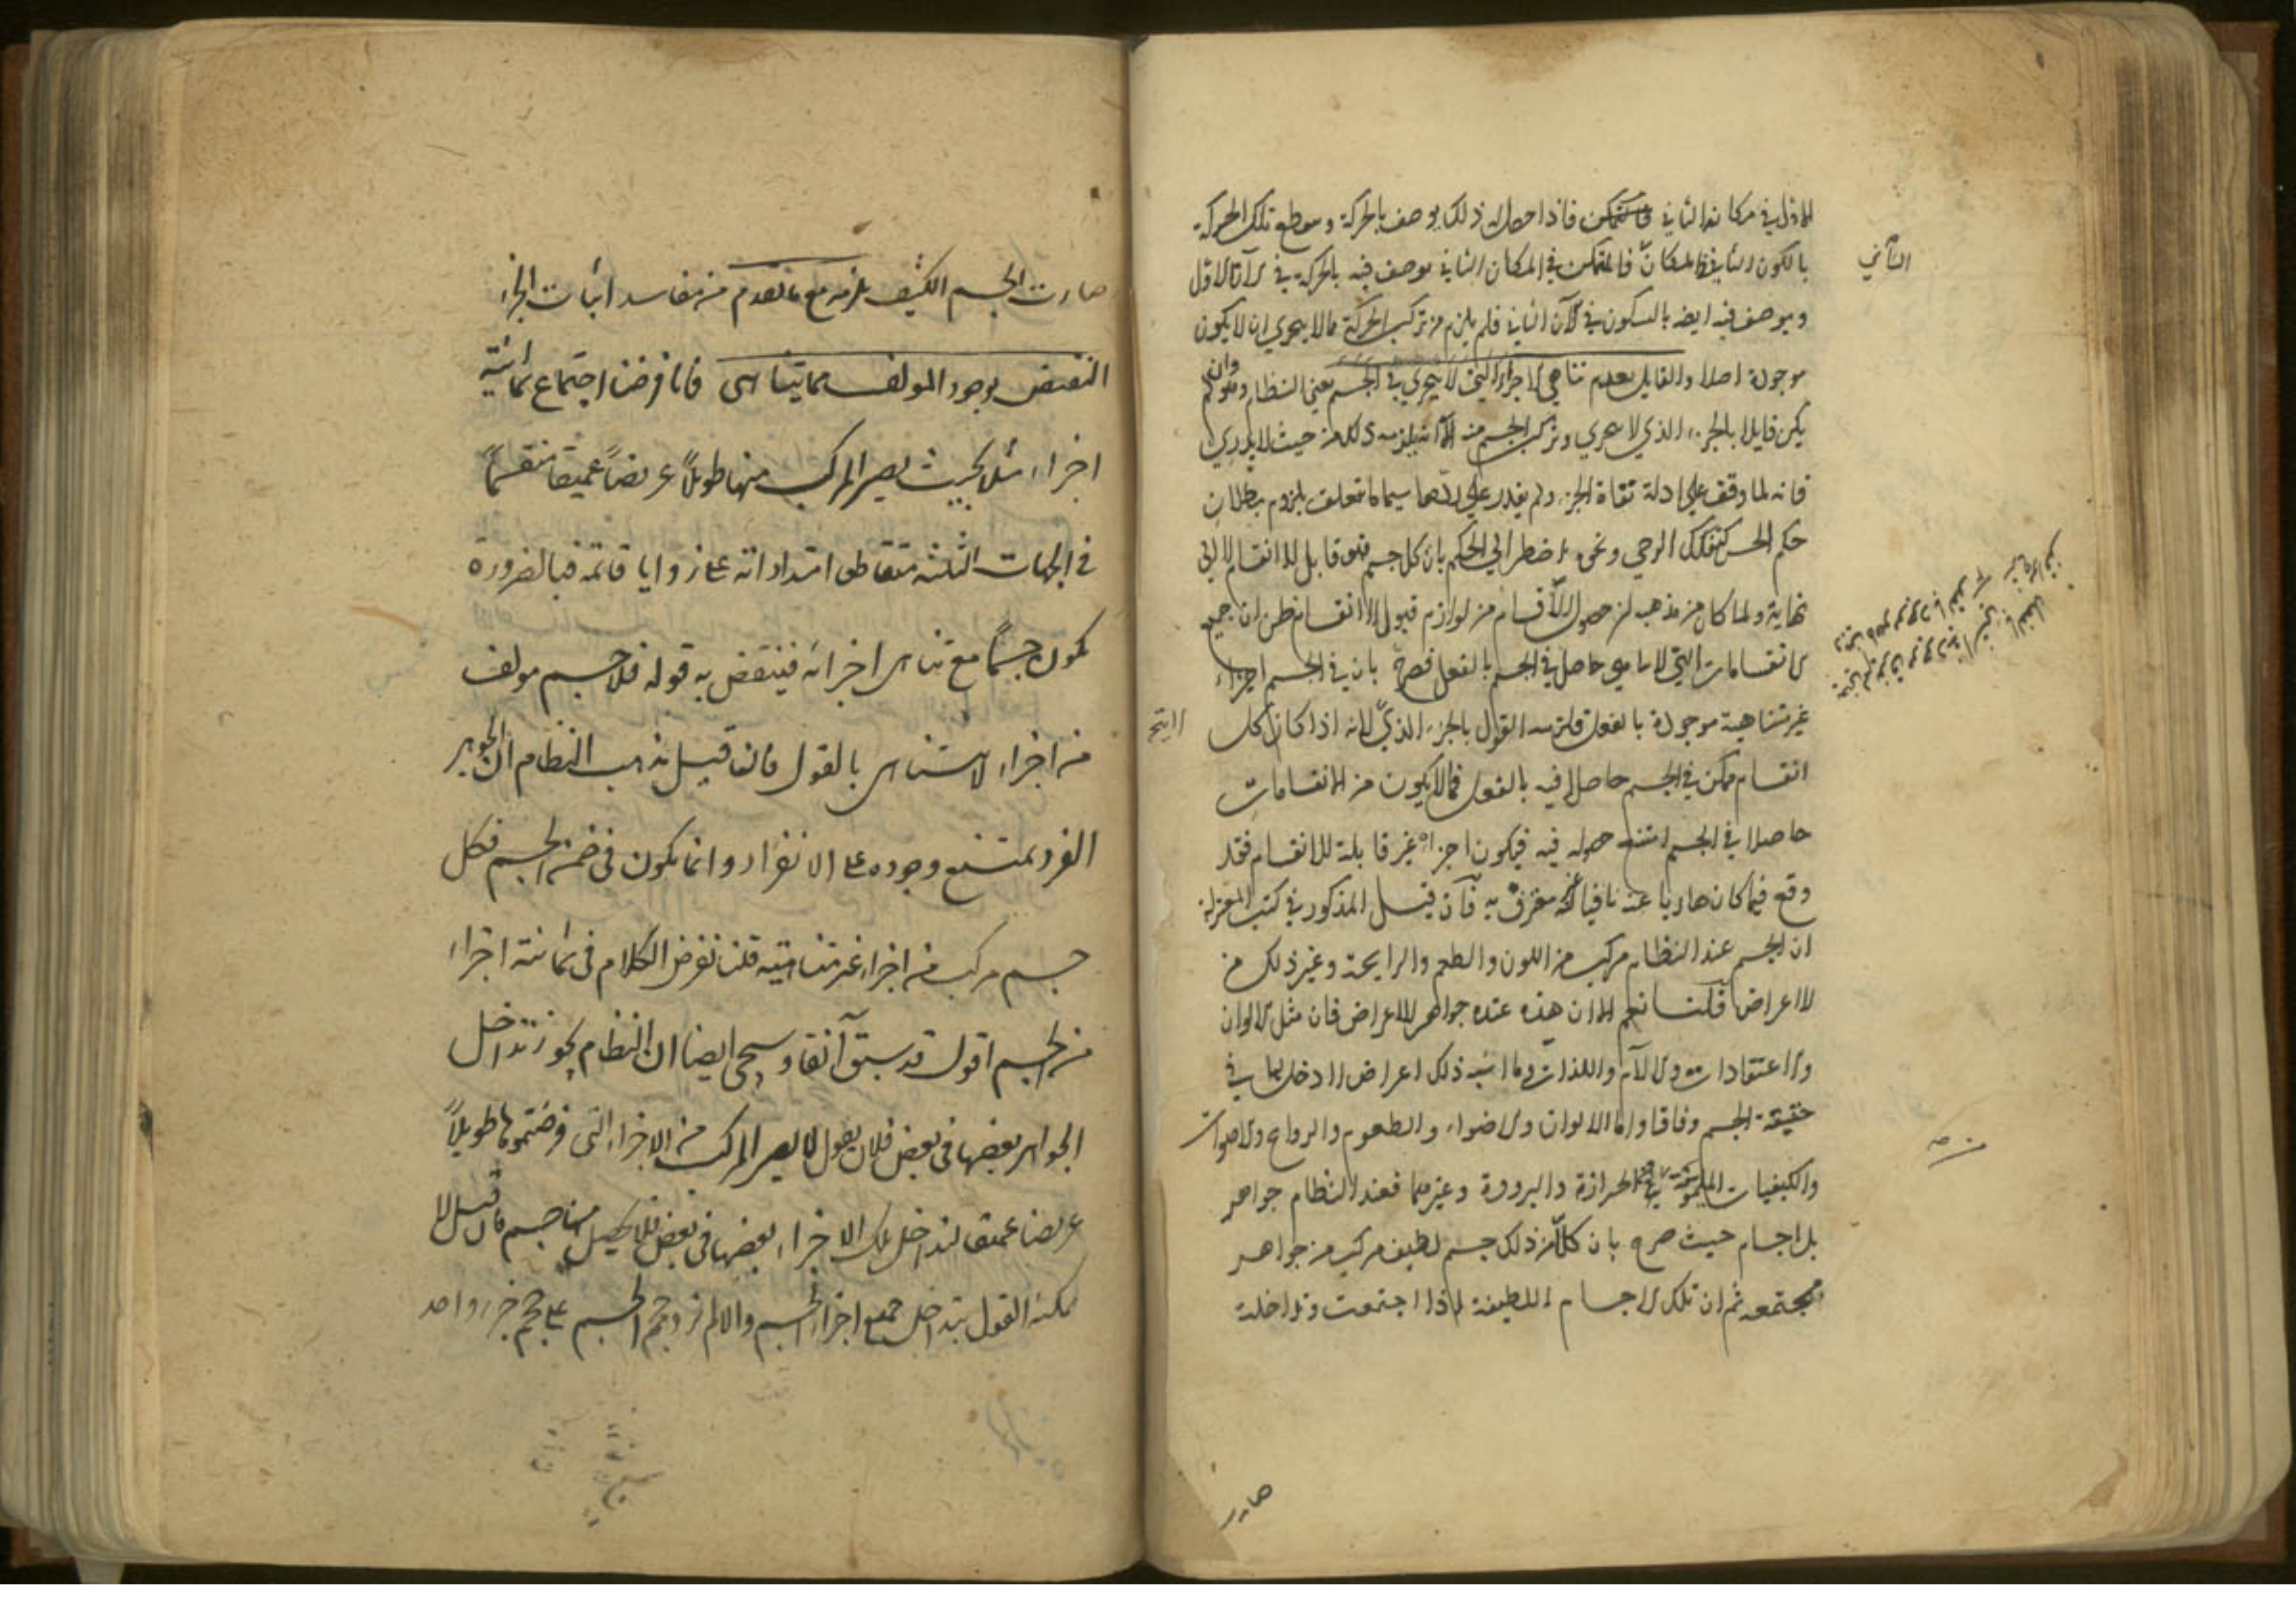 الاول في مكانه الثاني فاذا حصل له ذلك يوصف بالحركة وينقطع تلك الحركة
بالكون الثاني في المكان فالمتمكن في المكان الثاني يوصف فيه بالحركة في الآن الاول
الثاني
ويوصف فيه ايضا بالسكون في الآن الثاني فلم يلزم من تركب الحركة مما لا يتجزي ان لا يكون
موجودة اصلا والقايل بعدم تناهي الاجزاء التي لا يتجزي في الجسم يعني النظام وانه لم
يكن قايلا بالجزء الذي لا يتجزي وتركب الجسم منه الا انه يلزمه ذلك من حيث لا يدري
فانه لما وقف علي ادلة نفاة الجزء ولم يقدر علي ردها سيما ما تتعلق بلزوم بطلان
حكم الحس كتفكك الرحي ونحوه اضطر الي الحكم بان كل جسم فهو قابل للانقسام لا الي
نهاية ولما كان من مذهبه ان حصول الاقسام من لوازم قبول الانقسام ظن ان جميع
الانقسامات التي لا تناهي حاصل في الجسم بالفعل فصرح بان في الجسم اجزاء
غير متناهية موجودة بالفعل فلزمه القول بالجزء الذي لانه اذا كان كل
لا يتجز
انقسام ممكن في الجسم حاصلا فيه بالفعل فما لا يكون من الانقسامات
حاصلا في الجسم امتنع حصوله فيه فيكون اجزاؤه غير قابلة للانقسام فقد
وقع فيما كان هاربا عنه نافيا له غير معترف به فان قيل المذكور في كتب المعتزلة
ان الجسم عند النظام مركب من اللون والطعم والرايحة وغير ذلك من
الاعراض قلنا نعم الا ان هذه عنده جواهر لا اعراض فان مثل الالوان
والاعتقادات والآلام واللذات وما اشبه ذلك اعراض لا دخل لها في
حقيقة الجسم وفاقا واما الالوان والاضواء والطعوم والروايح والاصوات
والكيفيات الملموسة من الحرارة والبرودة وغيرهما فعند النظام جواهر
بل اجسام حيث صرح بان كلا من ذلك جسم لطيف مركب من جواهر
مجتمعة ثم ان تلك الاجسام اللطيفة اذا اجتمعت وتداخلت
صارت
صارت الجسم الكثيف يلزمه مع ما تقدم من مفاسد اثبات الجزء
النقض بوجود المولف مما يتناهى فانا فرضنا اجتماع ثمانية
اجزاء مثلا بحيث يصير المركب منها طويلاً عريضاً عميقاً منقسماً
في الجهات الثلثة متقاطع امتداداته على زوايا قائمة فبالضرورة
يكون جسماً مع تناهى اجزائه فينتقض به قوله فلا جسم مولف
من اجزاء لا يتناهى بالقول فان قيل مذهب النظام ان الجوهر
الفرد يمتنع وجوده على الانفراد وانما يكون في ضمن الجسم فكل
جسم مركب من اجزاء غير متناهية قلنا نفرض الكلام في ثمانية اجزاء
من الجسم اقول قد سبق آنفا وسيجى ايضا ان النظام يجوز تداخل
الجواهر بعضها في بعض فلان يقول لا يصير المركب من الاجزاء التي فرضتموها طويلاً
عريضا عميقا لتداخل تلك الاجزاء بعضها في بعض فلا يحصل منها جسم فان قيل لا
يمكنه القول بتداخل جميع اجزاء الجسم والا لم يزد حجم الجسم على حجم جزء واحد